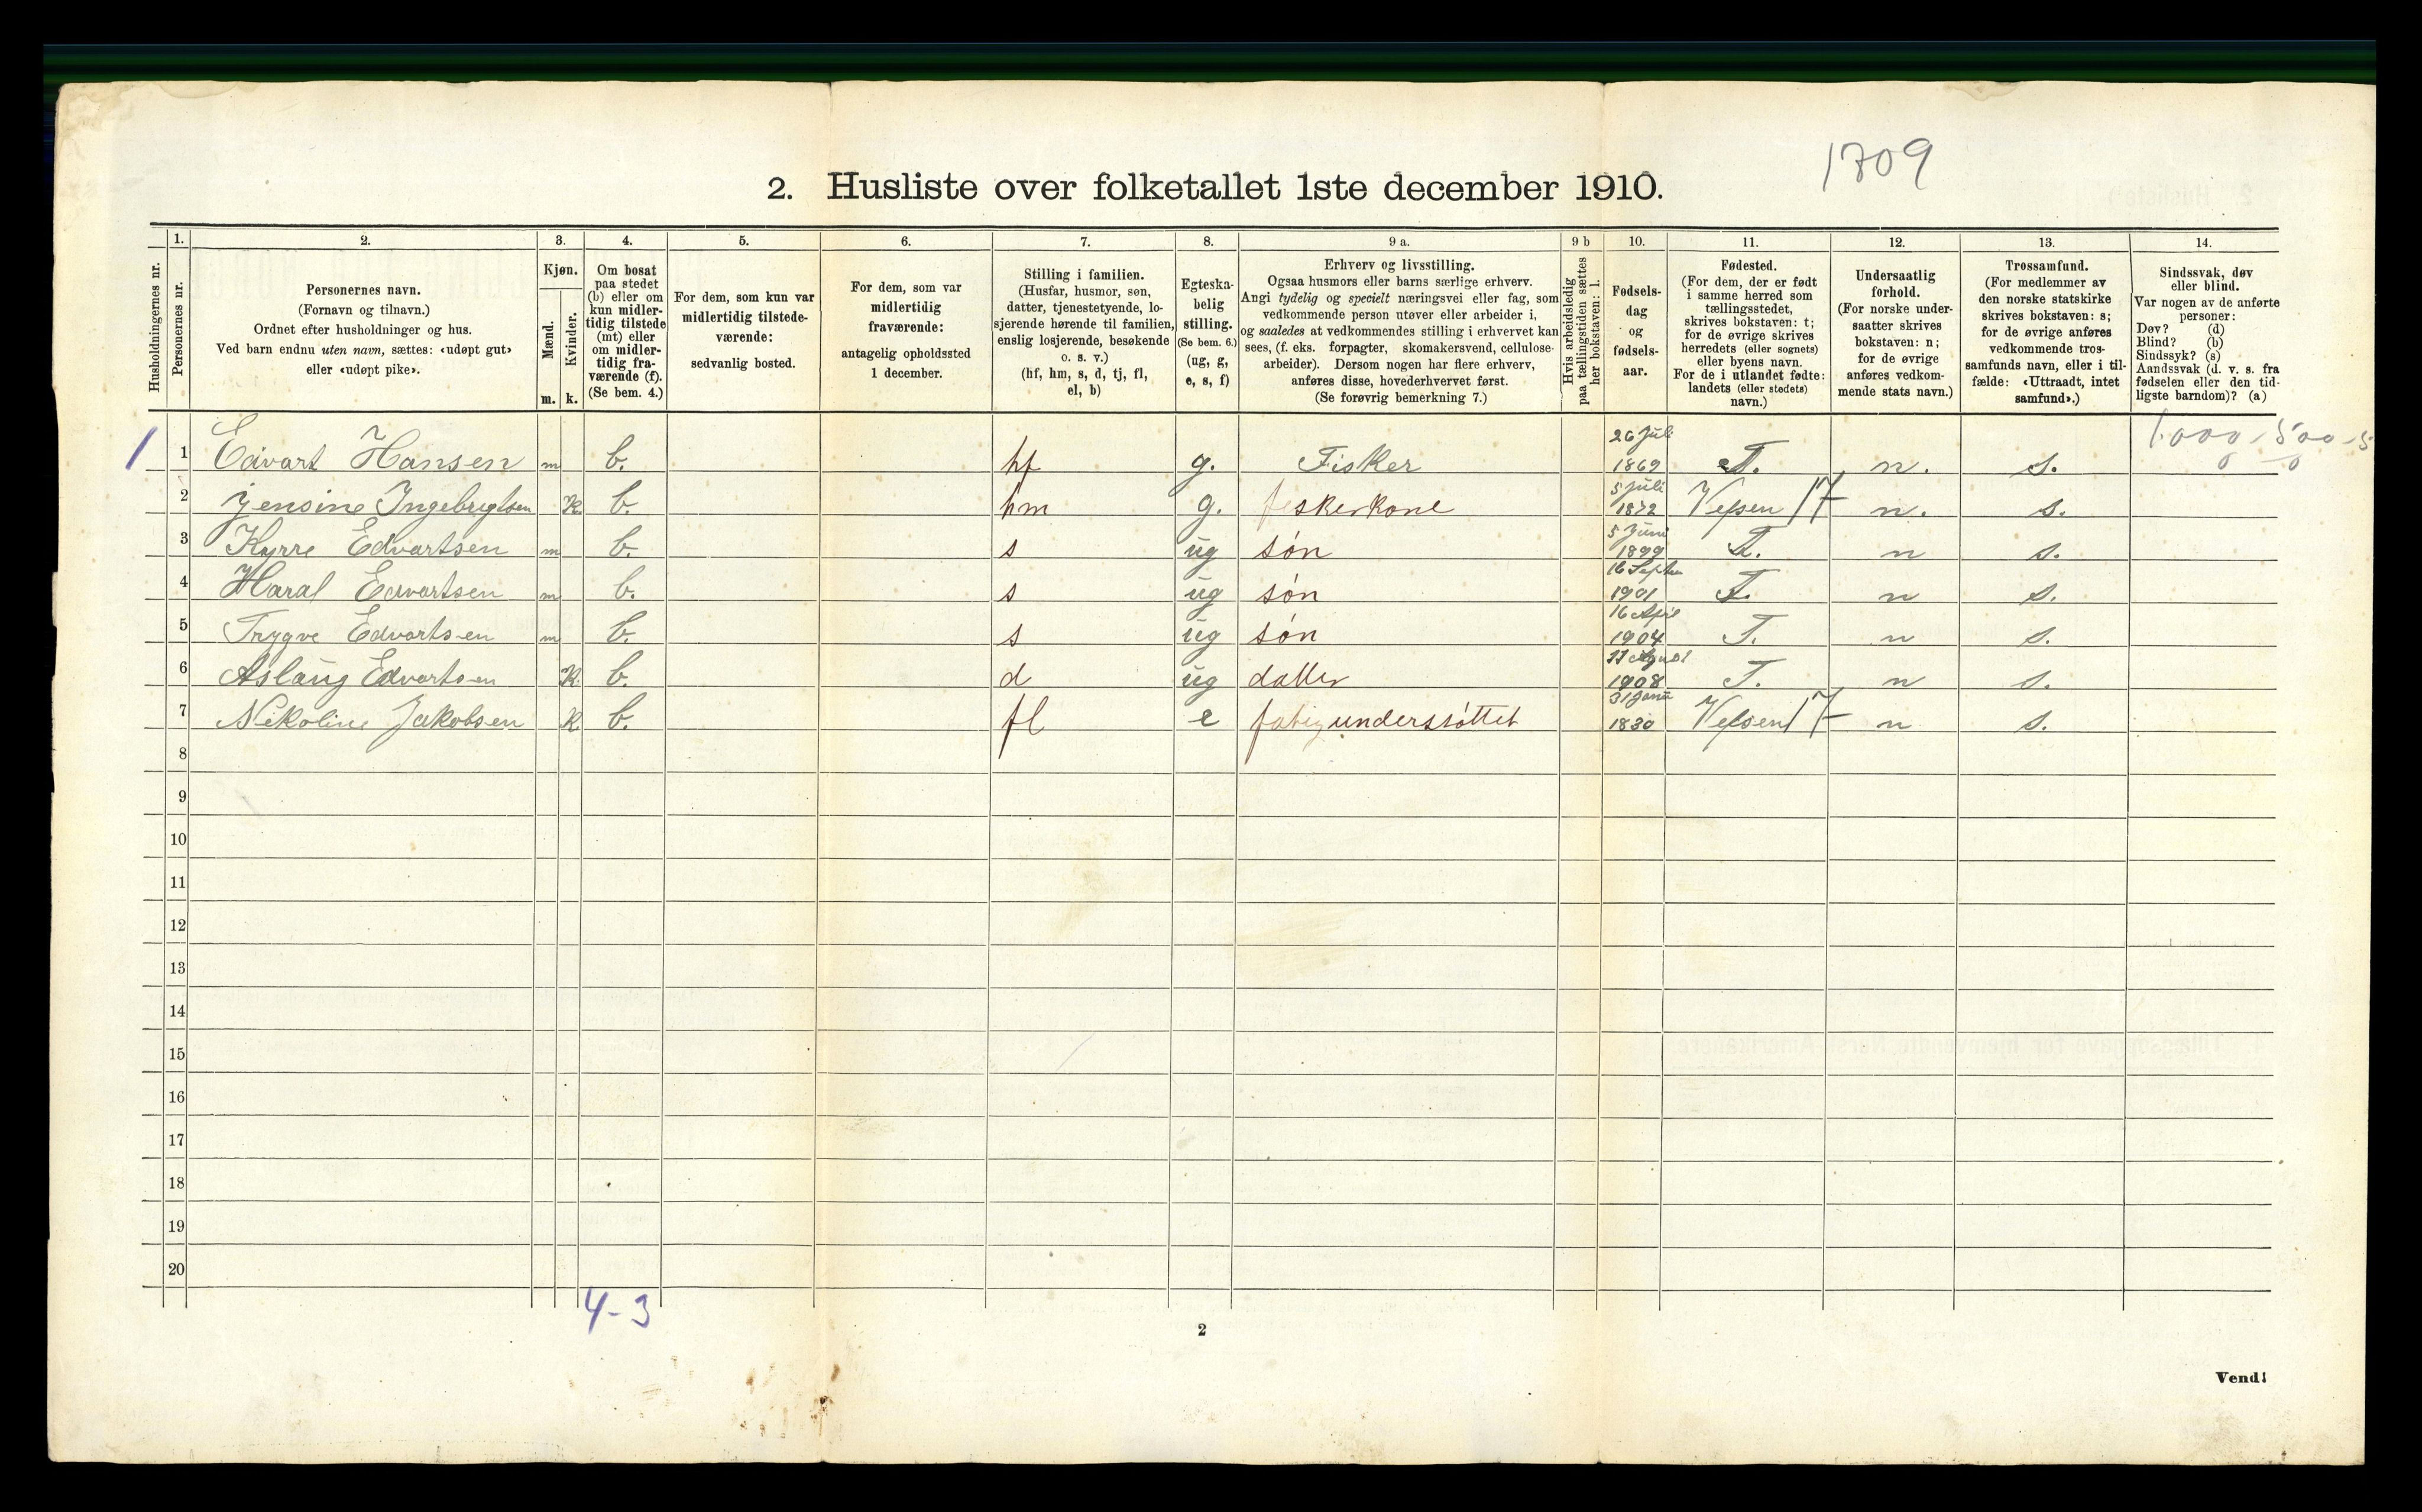 1709
2. Husliste over folketallet 1ste december 1910.
Husholdningernes nr.
1. Personernes nr.
2. Personernes navn.
(Fornavn og tilnavn.)
Ordnet efter husholdninger og hus.
Ved barn endnu uten navn, sættes: «udøpt gut»
eller «udøpt pike».
3. Kjøn.
Mænd. m.
Kvinder. k.
4. Om bosat
paa stedet
(b) eller om
kun midler-
tidig tilstede
(mt) eller
om midler-
tidig fra-
værende (f).
(Se bem. 4.)
5. For dem, som kun var
midlertidig tilstede-
værende:
sedvanlig bosted.
6. For dem, som var
midlertidig
fraværende:
antagelig opholdssted
1 december.
7. Stilling i familien.
(Husfar, husmor, søn,
datter, tjenestetyende, lo-
sjerende hørende til familien,
enslig losjerende, besøkende
o. s. v.)
(hf, hm, s, d, tj, fl,
el, b)
8. Egteska-
belig
stilling.
(Se bem. 6.)
(ug, g,
e, s, f)
9 a. Erhverv og livsstilling.
Ogsaa husmors eller barns særlige erhverv.
Angi tydelig og specielt næringsvei eller fag, som
vedkommende person utøver eller arbeider i,
og saaledes at vedkommendes stilling i erhvervet kan
sees, (f. eks. forpagter, skomakersvend, cellulose-
arbeider). Dersom nogen har flere erhverv,
anføres disse, hovederhvervet først.
(Se forøvrig bemerkning 7.)
9 b Hvis arbeidsledig
paa tællingstiden sættes
her bokstaven: l.
10. Fødsels-
dag
og
fødsels-
aar.
11. Fødested.
(For dem, der er født
i samme herred som
tællingsstedet,
skrives bokstaven: t;
for de øvrige skrives
herredets (eller sognets)
eller byens navn.
For de i utlandet fødte:
landets (eller stedets)
navn.)
12. Undersaatlig
forhold.
(For norske under-
saatter skrives
bokstaven: n;
for de øvrige
anføres vedkom-
mende stats navn.)
13. Trossamfund.
(For medlemmer av
den norske statskirke
skrives bokstaven: s;
for de øvrige anføres
vedkommende tros-
samfunds navn, eller i til-
fælde: «Uttraadt, intet
samfund».)
14. Sindssvak, døv
eller blind.
Var nogen av de anførte
personer:
Døv? (d)
Blind? (b)
Sindssyk? (s)
Aandssvak (d. v. s. fra
fødselen eller den tid-
ligste barndom)? (a)
1 1 Edvart Hansen m b. hf g. Fisker 26 Juli 1869 T. n. s. 1.000 - 500 - 5
2 Jensine Ingebrigtsen k b. hm g. fiskerkone 5 Juli 1872 Vefsen 17 n. s.
3 Kyrre Edvartsen m b. s ug søn 5 Juni 1899 T. n s.
4 Haral Edvartsen m b. s ug søn 16 Septm 1901 T. n s.
5 Trygve Edvartsen m b. s ug søn 16 April 1904 T. n s.
6 Aslaug Edvartsen k b. d ug datter 11 August 1908 T. n s.
7 Nikoline Jakobsen k b. fl e fatigunderstøttet 31 Janu 1830 Vefsen 17 n s.
8
9
10
11
12
13
14
15
16
17
18
19
20
4-3
2
Vend!